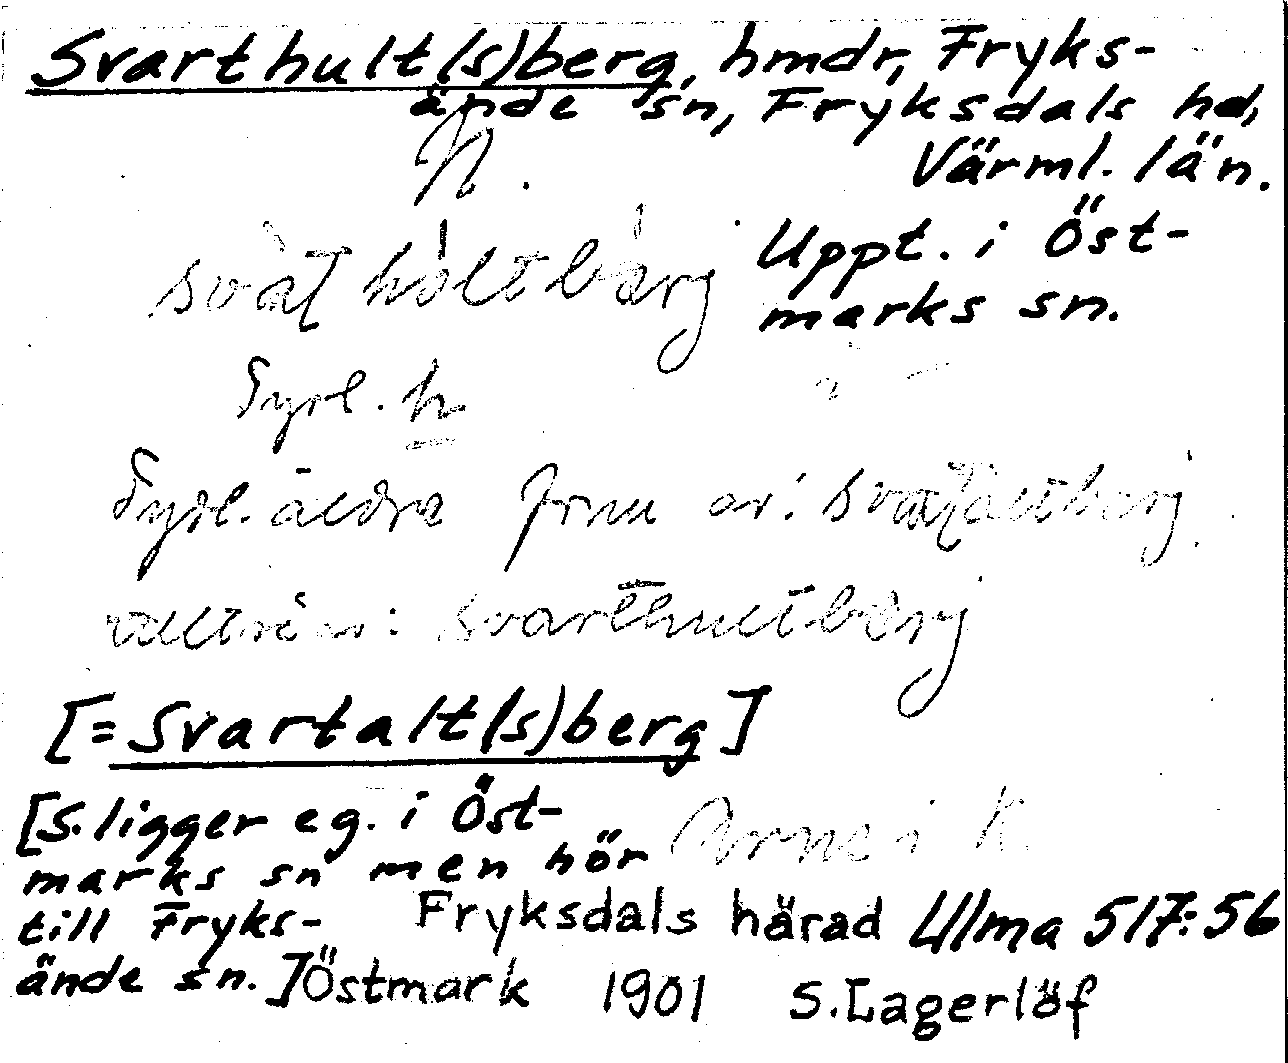 Svarthult(s)berg, hmdr, Fryks-
ände sn, Fryksdals hd,
Värml. län.
Uppt. i Öst-
marks sn.
Tydl. h
Tydl. äldre
svarthultberg
[= Svartalt(s)berg]
[S. ligger eg. i Öst-
marks sn men hör
till Fryks-
ände sn.]
Arne i K.
Fryksdals härad Ulma 517:56
Östmark 1901 S. Lagerlöf